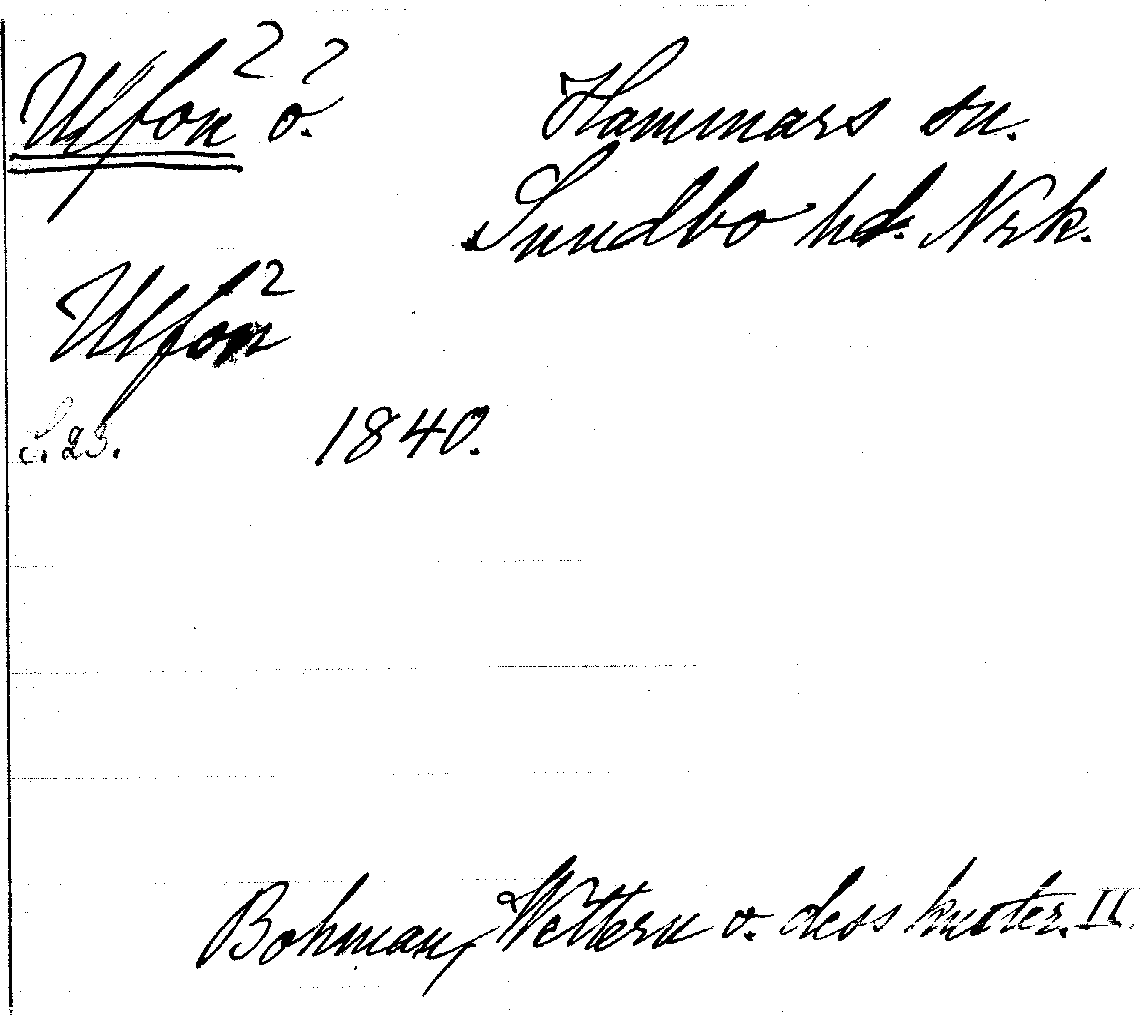 Ulfon² ? o. Hammars sn.
Sundbo hd. Nrk.
Ulfon²
S. 23. 1840.
Bohman, Wettern o. dess kuster. II.